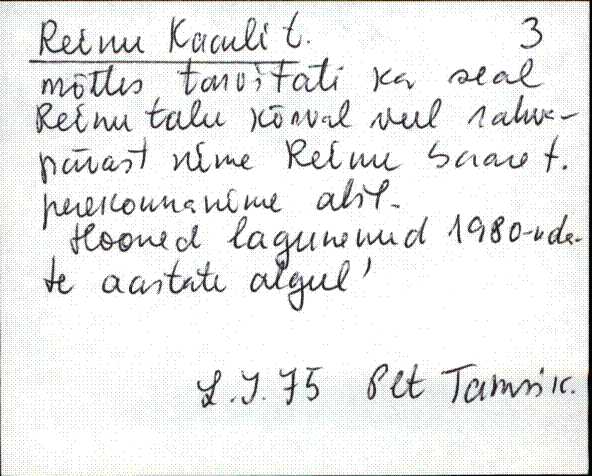 Reinu Kaauli t. 3
mõttes, tarvitati ka seal
Reinu talu kõrval veel rahva-
pärast nime Reinu Saare t.
perekonnanime abil.
Hooned lagunenud 1980-nda-
te aastate algul'
L.J. 75 Tamsik.